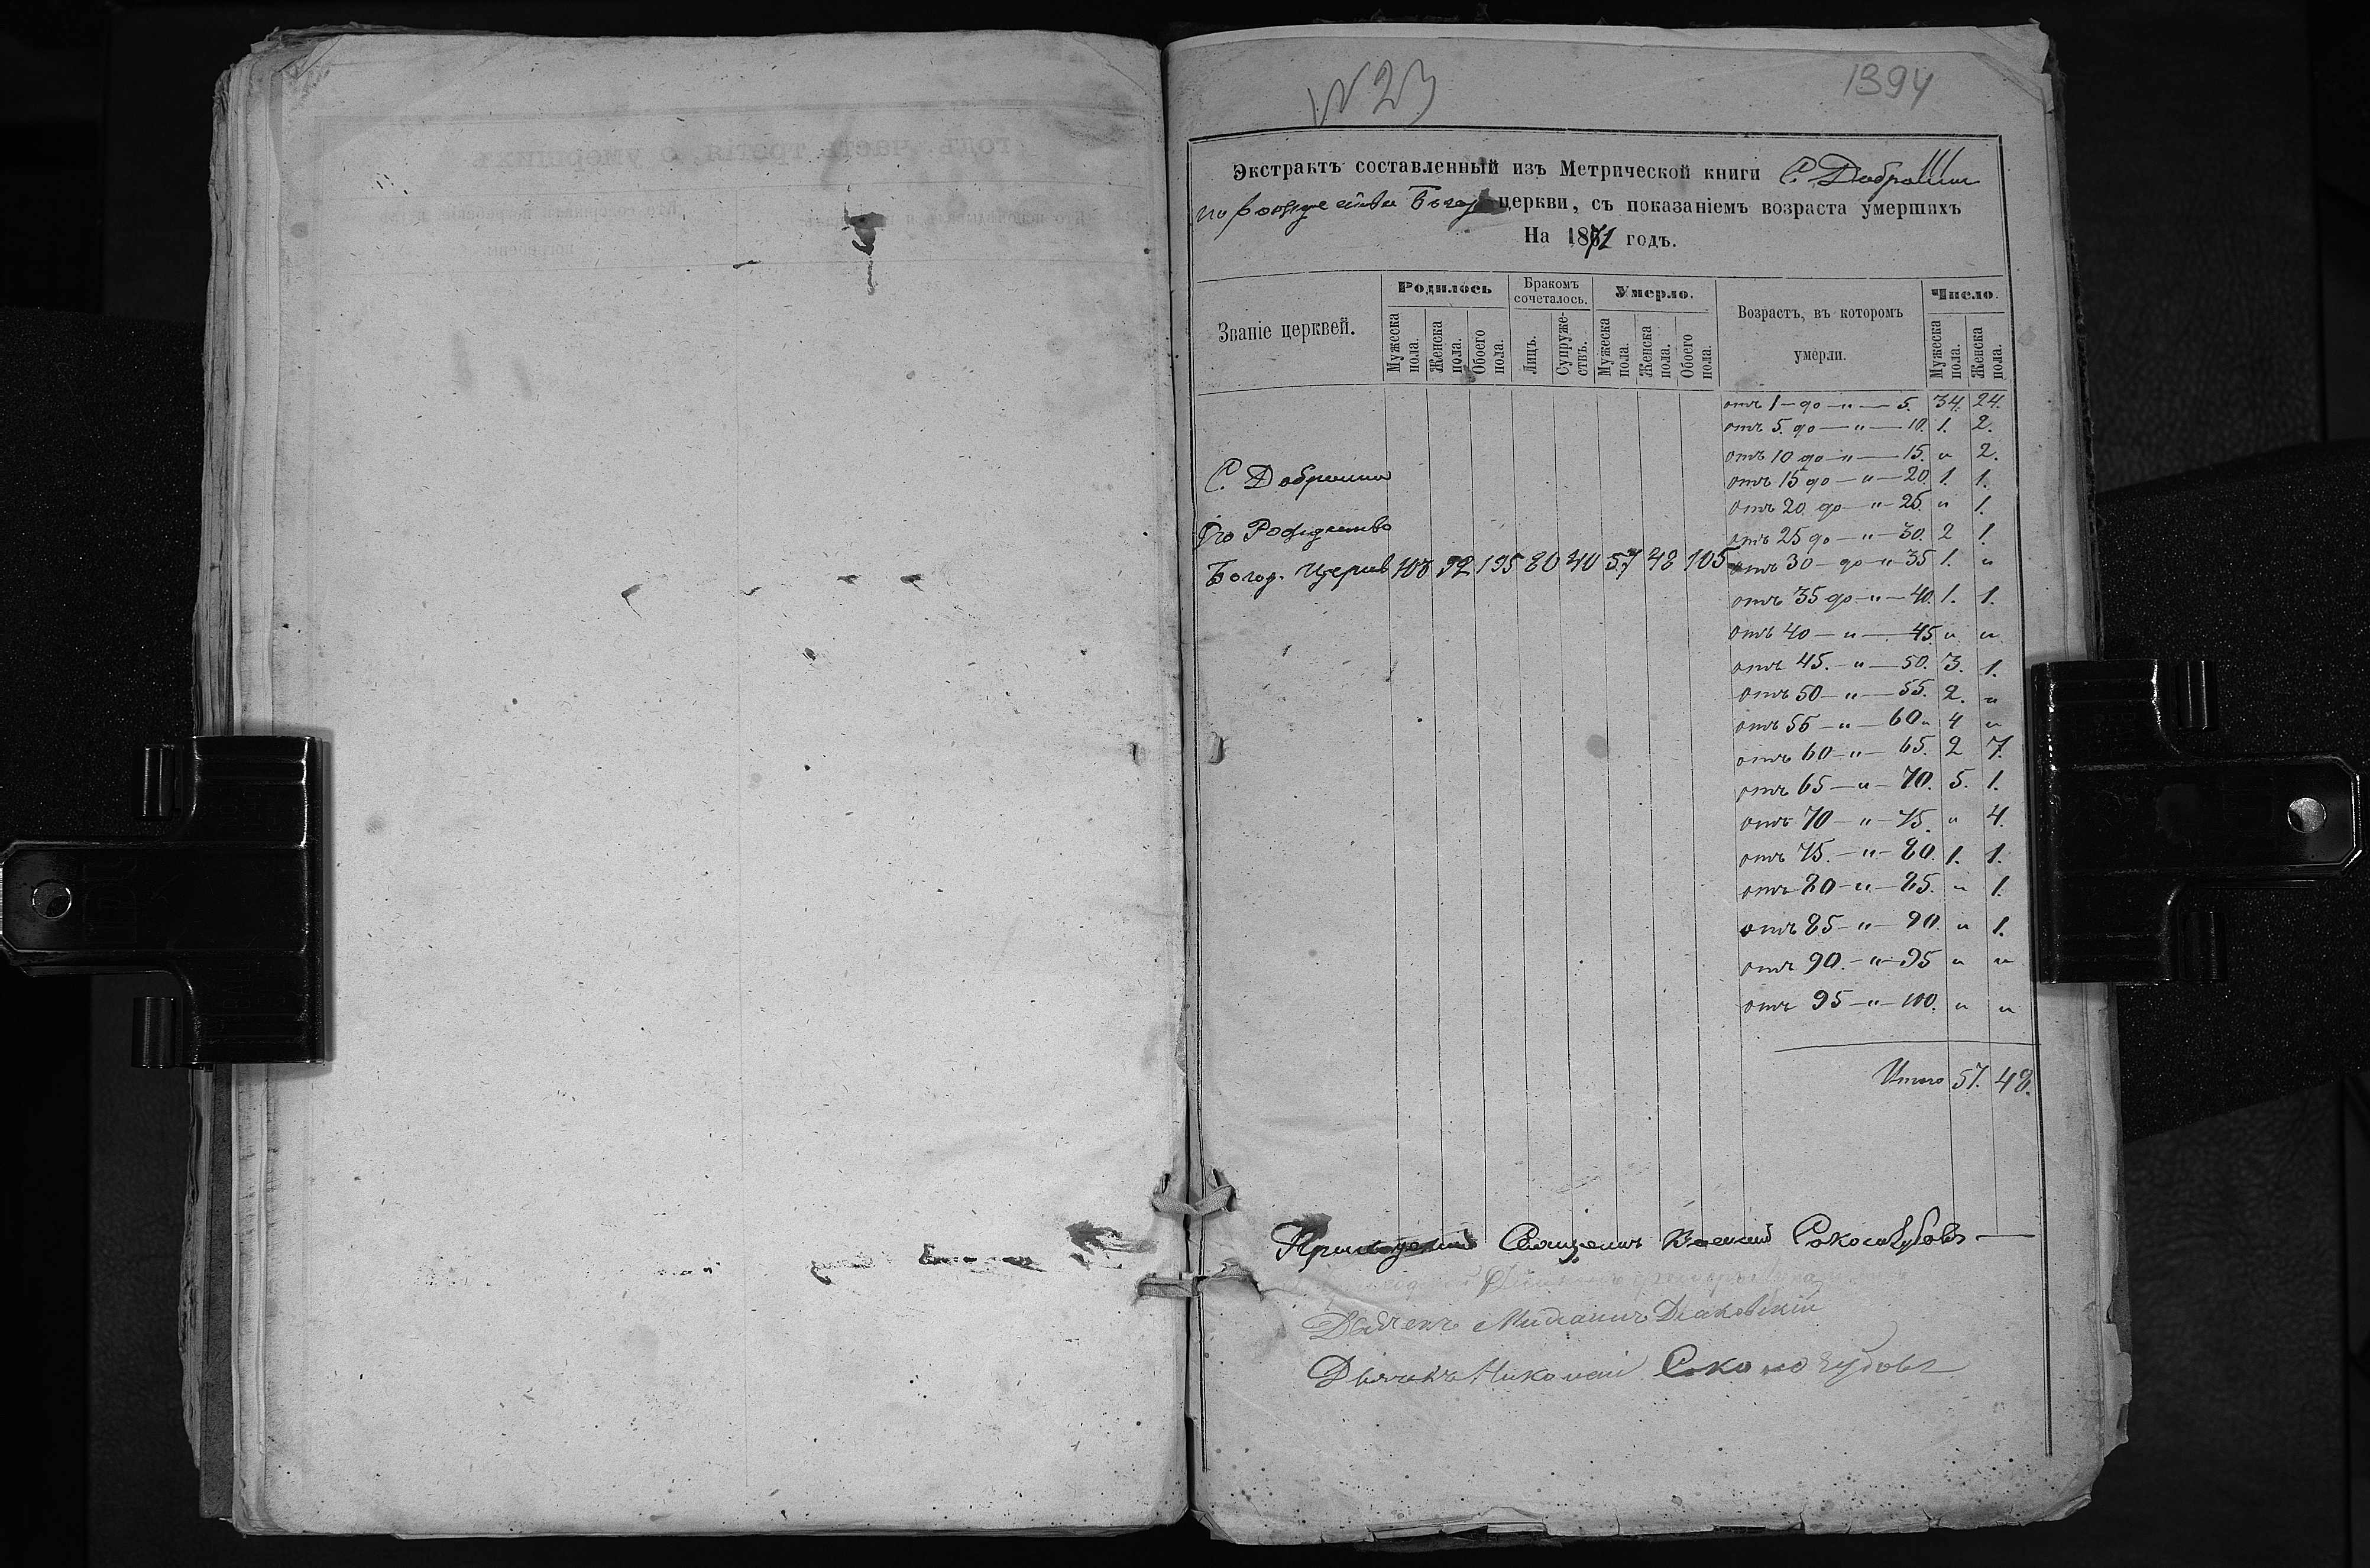 N 23
1394
Экстрактъ составленный изъ Метрической книги С. Добруши
по Рождества Богор. церкви, съ показаніемъ возраста умершихъ
На 1871 годъ.
Званіе церквей.
Родилось
Бракомъ сочеталось.
Умерло.
Возрастъ, въ которомъ умерли.
Число.
Мужеска пола.
Женска пола.
Обоего пола.
Лицъ.
Супружествъ.
Мужеска пола.
Женска пола.
Обоего пола.
Мужеска пола.
Женска пола.
отъ 1 — до — " — 5. 34. 24.
отъ 5. до — " — 10. 1. 2.
отъ 10 до — " — 15. " 2.
отъ 15 до — " — 20 1. 1.
отъ 20 до — " — 25. " 1.
отъ 25 до — " — 30. 2 1.
С. Добруши
Рождество
Богор. Церкв 103 92 195 80 40 57 48 105
отъ 30 — до " 35 1. "
отъ 35 до — " — 40. 1. 1.
отъ 40 — " — 45 " "
отъ 45. — " — 50. 3. 1.
отъ 50 — " — 55. 2. "
отъ 55 — " — 60 " 4 "
отъ 60 — " — 65. 2 7.
отъ 65 — " — 70. 5. 1.
отъ 70 — " — 75. " 4.
отъ 75. — " — 80. 1. 1.
отъ 80 — " — 85. " 1.
отъ 85 — " — 90. " 1.
отъ 90. — " — 95 " "
отъ 95 — " — 100. " "
Итого 57. 48.
Приходскій Священикъ Василій
Дьячекъ Дьяковскій
Дьячекъ Николай